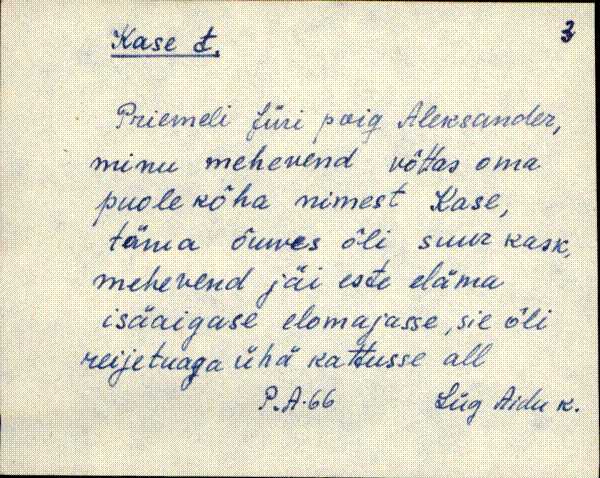 3
Kase t.
Priemeli Jüri poig Aleksander,
minu mehevend võttas oma
puole kõha nimest Kase,
täma õuves õli suur kask,
mehevend jäi este eläma
isäaigase elomajasse, sie õli
reijetuaga ühä kattusse all
P.A.66 Lüg Aidu k.